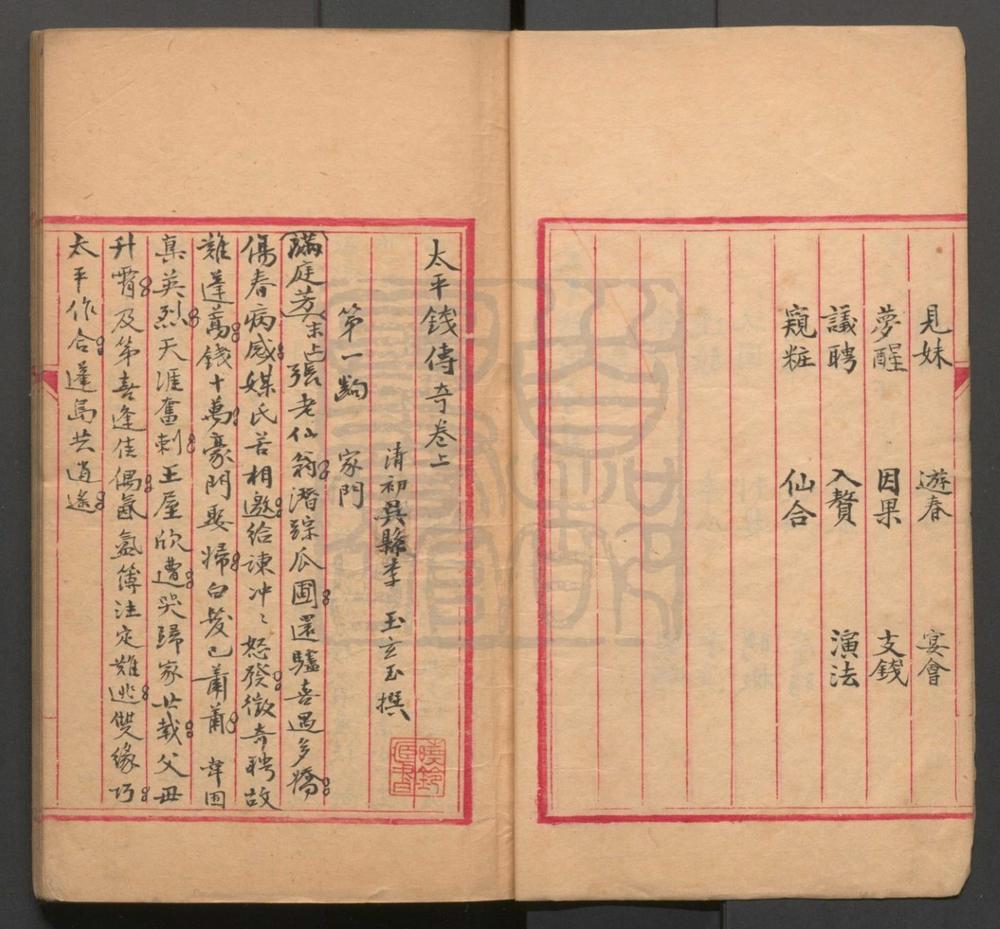 見妹　遊春　宴會
夢醒　因果　支錢
議聘　入贅　演法
窺粧　仙合
太平錢傳奇卷上
清初吳縣李　玉玄玉撰
第一齣　家門
滿庭芳末上張老仙翁潛踪瓜圃還驢喜遇多嬌
傷春病感媒氏苦相邀給諫冲〻怒發徵奇聘故
難逢萬錢十萬豪門娶婦白髮已蕭蕭　韋固
真英烈天涯奮刺王屋欣遭哭歸家廿載父母
升霄及第喜逢佳偶氤氳簿注定難逃雙緣巧
太平作合蓬島共逍遙